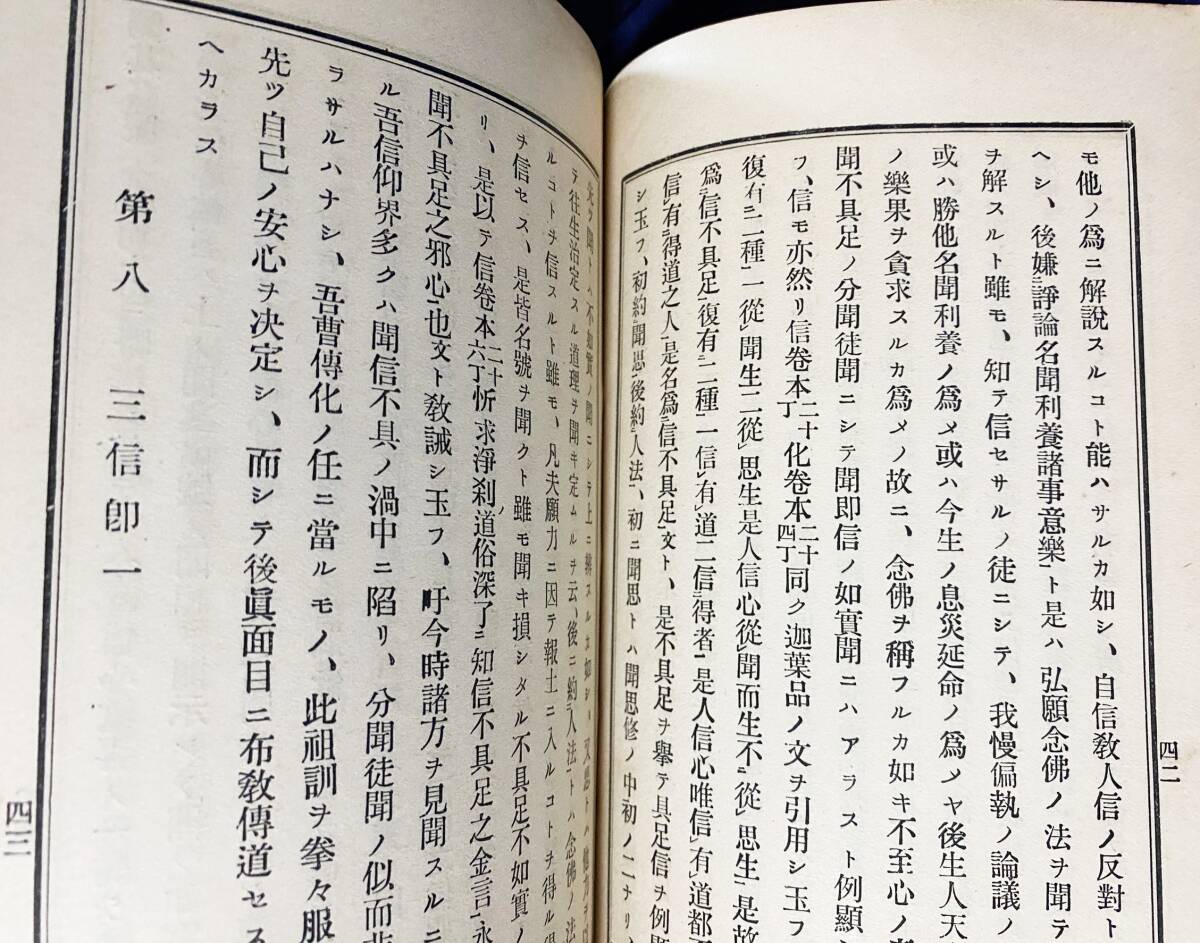 モ他ノ爲ニ解說スルコト能ハサルカ如シ、自信敎人信ノ反對ト
ヘシ、後嫌諍論名聞利養諸事意樂ト是ハ弘願念佛ノ法ヲ聞テ
ヲ解スルト雖モ、知テ信セサルノ徒ニシテ、我慢偏執ノ論議ノ
或ハ勝他名聞利養ノ爲メ或ハ今生ノ息災延命ノ爲メヤ後生人天
ノ樂果ヲ貪求スルカ爲メノ故ニ、念佛ヲ稱フルカ如キ不至心ノ
聞不具足ノ分聞徒聞ニシテ聞即信ノ如實聞ニハアラスト例顯シ
フ、信モ亦然リ信卷本二十丁化卷本二十四丁同ク迦葉品ノ文ヲ引用シ玉フ
復有二種一從聞生二從思生是人信心從聞而生不從思生是故
爲信不具足復有二種一信有道二信得者是人信心唯信有道都不
信有得道之人是名爲信不具足文ト、是不具足ヲ擧テ具足信ヲ例顯
シ玉フ、初約聞思後約人法、初ニ聞思トハ聞思修ノ中初ノ二ナリ
四二
先ツ聞トハ不如實ノ聞ニシテ上ニ辨スルカ如シ、又思トハ他力
テ往生治定スル道理ヲ聞キ定ムルヲ云、後ニ約人法トハ念佛ノ法
ルコトヲ信スルト雖モ、凡夫願力ニ因テ報土ニ入ルコトヲ得ル
ヲ信セス、是皆名號ヲ聞クト雖モ聞キ損シタル不具足不如實ノ
リ、是以テ信卷本二十六丁忻求淨刹道俗深了知信不具足之金言永
聞不具足之邪心也文ト敎誡シ玉フ、吁今時諸方ヲ見聞スルニ
ル吾信仰界多クハ聞信不具ノ渦中ニ陷リ、分聞徒聞ノ似而非
ラサルハナシ、吾曹傳化ノ任ニ當ルモノ、此祖訓ヲ拳々服
先ツ自己ノ安心ヲ決定シ、而シテ後眞面目ニ布敎傳道セス
ヘカラス
第八 三信卽一
四三